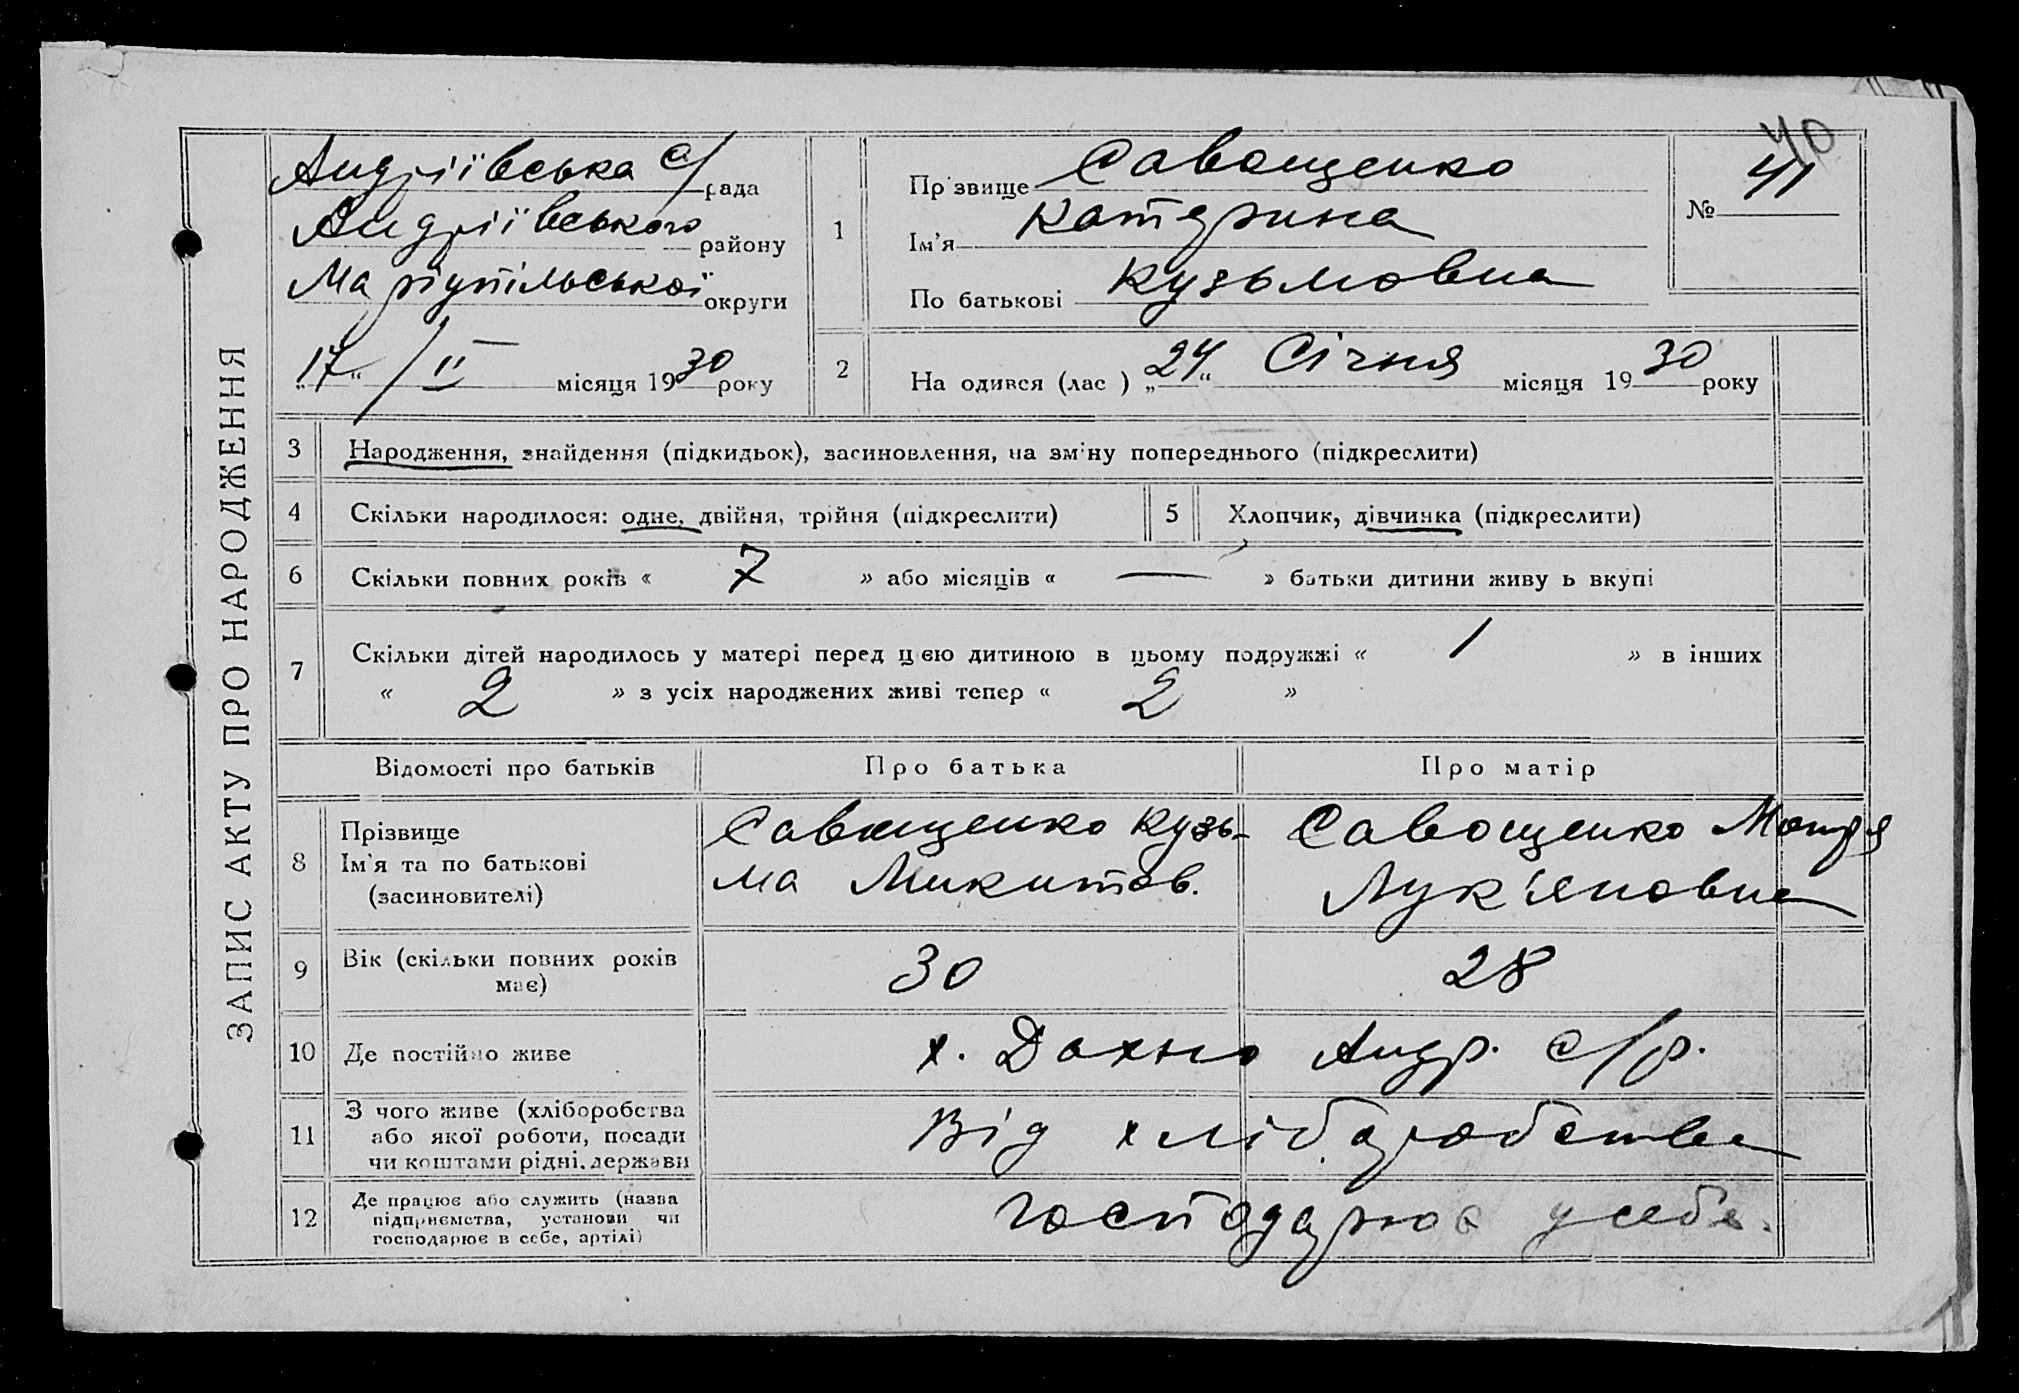 ЗАПИС АКТУ ПРО НАРОДЖЕННЯ
Андріївська с/рада
Андріївського району
Маріупільської округи
„17“ /II місяця 1930 року
1
Прізвище Савощенко
Ім'я Катерина
По батькові Кузьмовна
40
№ 41
2 На одився (лас ) „24“ Січня місяця 1930 року
3 Народження, знайдення (підкидьок), засиновлення, на зміну попереднього (підкреслити)
4 Скільки народилося: одне, двійня, трійня (підкреслити) 5 Хлопчик, дівчинка (підкреслити)
6 Скільки повних років « 7 » або місяців « — » батьки дитини живу ь вкупі
7 Скільки дітей народилось у матері перед цією дитиною в цьому подружжі « 1 » в інших
« 2 » з усіх народжених живі тепер « 2 »
Відомості про батьків Про батька Про матір
8 Прізвище
Ім'я та по батькові
(засиновителі)
Савощенко Кузь-
ма Микитов.
Савощенко Мотря
Лук'яновна
9 Вік (скільки повних років
має)
30 28
10 Де постійно живе х. Дахно Андр. с/р.
11 З чого живе (хліборобства
або якої роботи, посади
чи коштами рідні, держави
Від хліборобства
12 Де працює або служить (назва
підприємства, установи чи
господарює в себе, артілі)
господарює у себе.